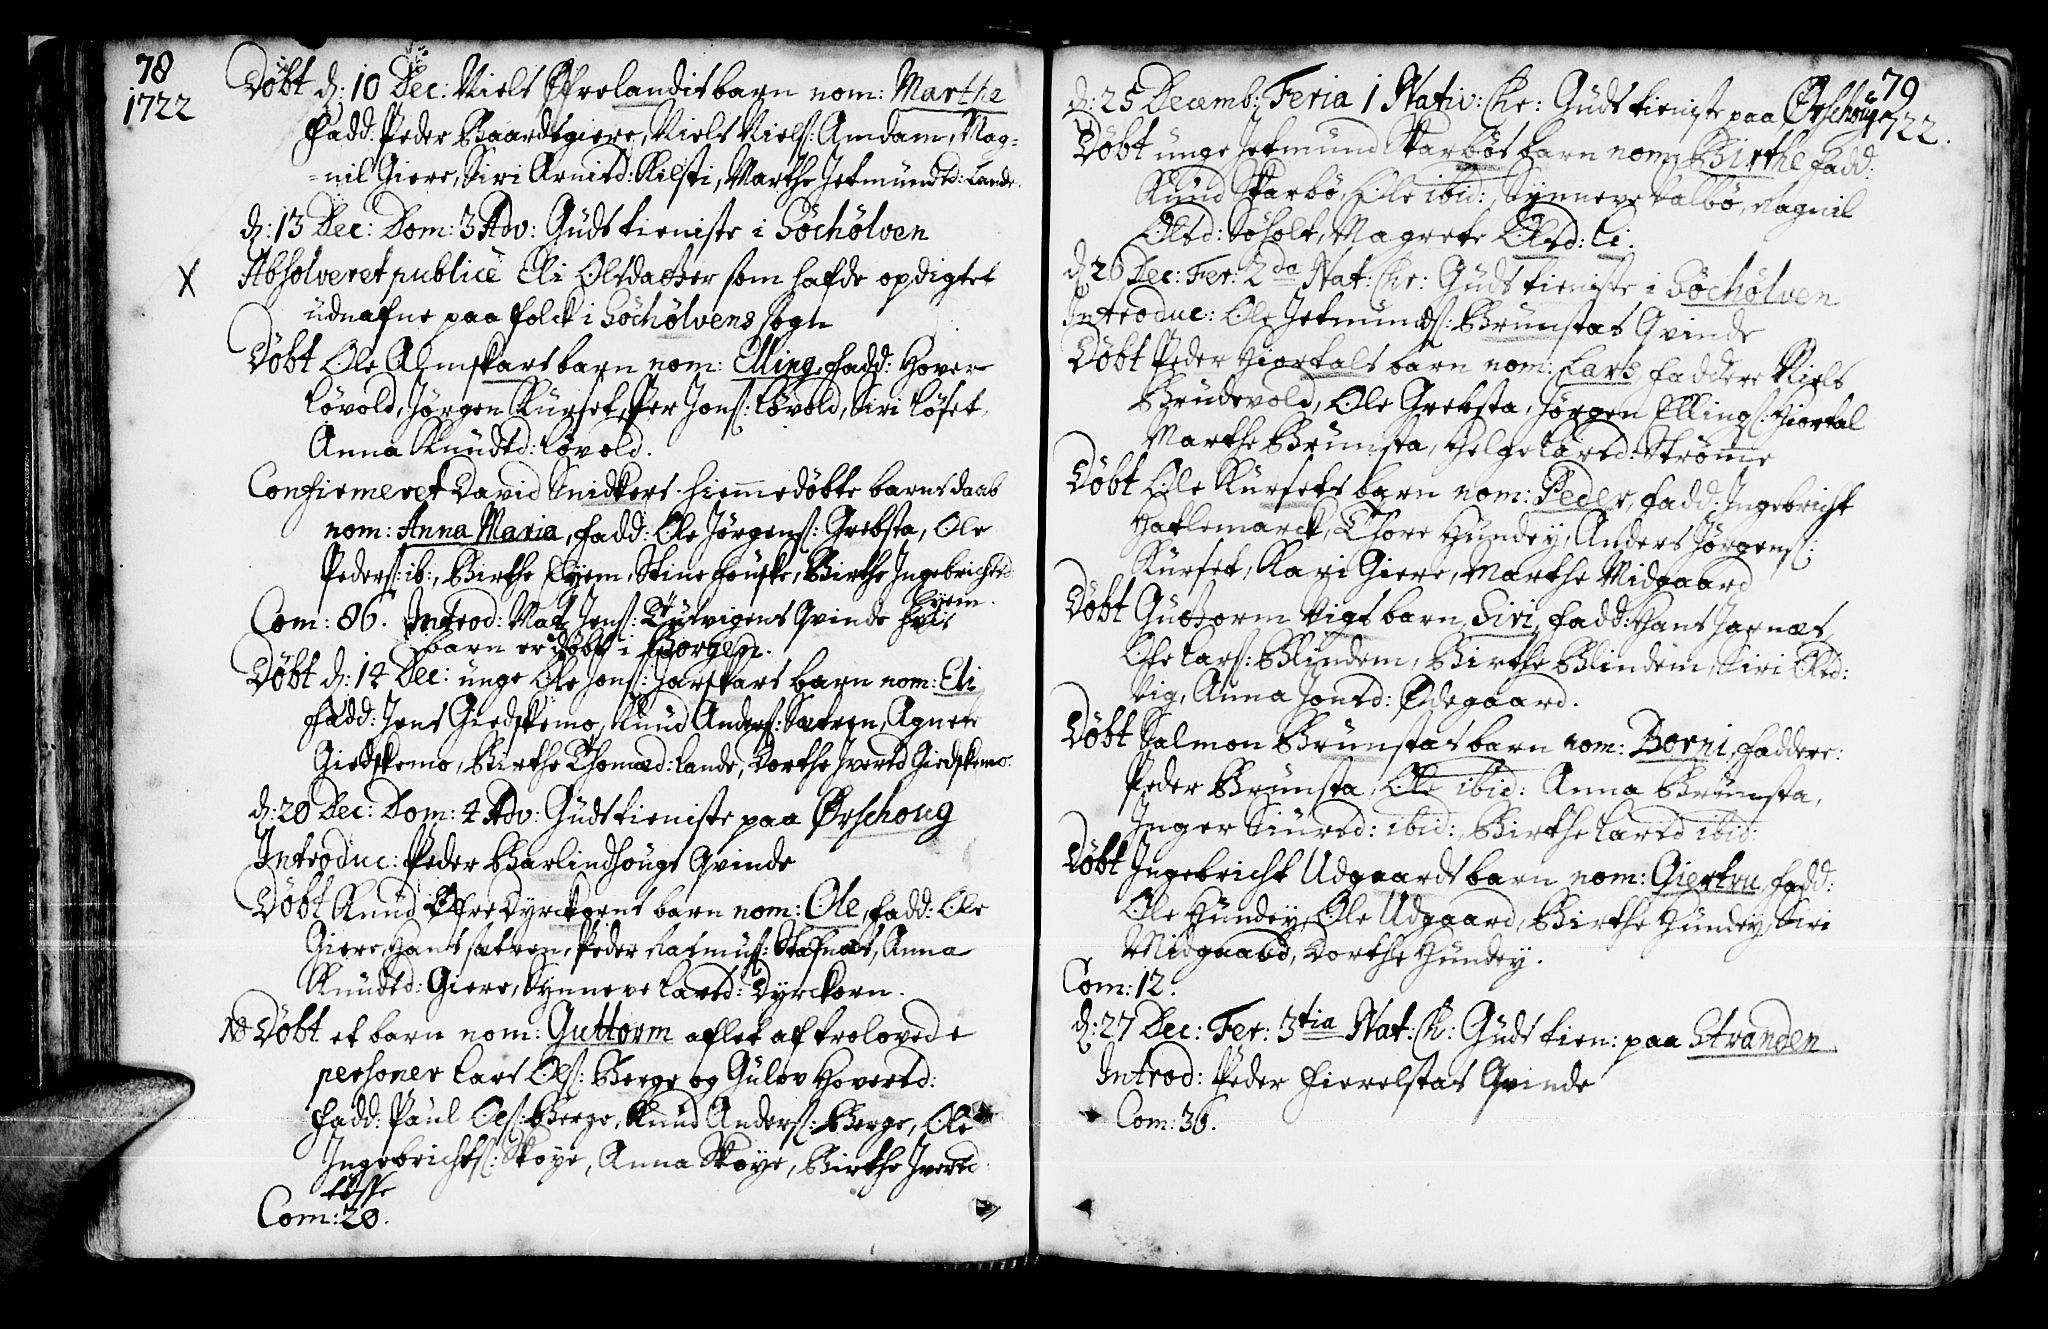 78
1722
Döbt d: 10 Dec: Niels Øfrelandsbarn nom: Marthe
Fadd: Peder Baardsgiere, Niels Niels: Amdam, Mag-
=nil Giere, Siri Arnitd: Kilsti, Marthe Jetmundtd: Lande.
d: 13 Dec: Dom: 3 Adv: Gudstieniste i Söchölven
X Absolveret publicè Eli Olsdatter som hafde opdigtet
udnafne paa folck i Söchölvens sogn
Döbt Ole Almskars barn nom: Elling, Fadd: Hover
Lövold, Jörgen Kurset, Per Jons: Lövold, Siri Löset,
Anna Knudtd: Lövold.
Confirmeret David Snidkers hiemmedöbte barns daab
nom: Anna Maria, Fadd: Ole Jörgens: Grebsta, Ole
Peders: ib:, Birthe Lyem, Stine Fenske, Birthe Ingebrichtd:
Lyem.
Com: 86. Introd: Mat Jens: Rutvigens Qvinde hvis
barn er döbt i Borgen.
Döbt d: 14 Dec: unge Ole Jons: Jarskars barn nom: Eli
Fadd: Jens Giedskemo, Knud Anders: Sætren, Agnete
Giedskemo, Birthe Thomæd: Lande, Dorthe Iverstd Giedskemo.
d: 20 Dec: Dom: 4 Adv: Gudstieniste paa Ørschoug
Introduc: Peder Barlindhougs Qvinde
Döbt Knud Øfre Dyrckorns barn nom: Ole, Fadd: Ole
Giere, Hans Sætren, Peder Rasmus: Stafnæs, Anna
Knudtd: Giere, Synneve Larsd: Dyrckorn.
NB Döbt et barn nom: Guttorm aflet af trolovede
personer Lars Ols: Berge og Gulov Hoverstd:
Fadd: Paul Ols: Berge, Knud Anders: Berge, Ole
Ingebrichts: Skoye, Anna Skoye, Birthe Iverstd:
Com: 20.
79
1722.
d: 25 Decemb: Feria 1 Nativ: Chr: Gudstieniste paa Ørschoug
Döbt unge Jetmund Skarbös barn nom: Birthe Fadd:
Knud Skarbö, Ole ibid:, Synneve Valbö, Magnil
Olsd: Söholt, Magrete Olsd: Li.
d: 26 Dec: Fer: 2da Nat: Chr: Gudstieniste i Söchölven
Introduc: Ole Jetmunds: Brunstas Qvinde
Döbt Peder Hiortals barn nom: Lars, Faddere Niels
Brudevold, Ole Grebsta, Jörgen Ellings: Hiortal
Marthe Brunsta, Helge Larsd: Strömme
Döbt Ole Kursets barn nom: Peder, Fadd: Ingebricht
Hatlemarck, Thore Hundey, Anders Jörgens:
Kurset, Kari Giere, Marthe Midgaard
Döbt Guttorm Vigs barn, Siri, Fadd: Hans Jarnæs,
Ole Lars: Blindem, Birthe Blindem, Siri Olsd:
Vig, Anna Jonsd: Ødegaard.
Döbt Salmon Brunstas barn nom: Borni, Faddere:
Peder Brunsta, Ole ibid: Anna Brunsta,
Inger Siurtd: ibid:, Birthe Larsd ibid:
Döbt Ingebricht Udgaards barn nom: Giertru, Fadd:
Ole Hundey, Ole Udgaard, Birthe Hundey, Siri
Midgaard, Dorthe Hundey.
Com: 12.
d: 27 Dec: Fer: 3tia Nat: Ch: Gudstien: paa Stranden
Introd: Peder Fierelstas Qvinde
Com: 36.